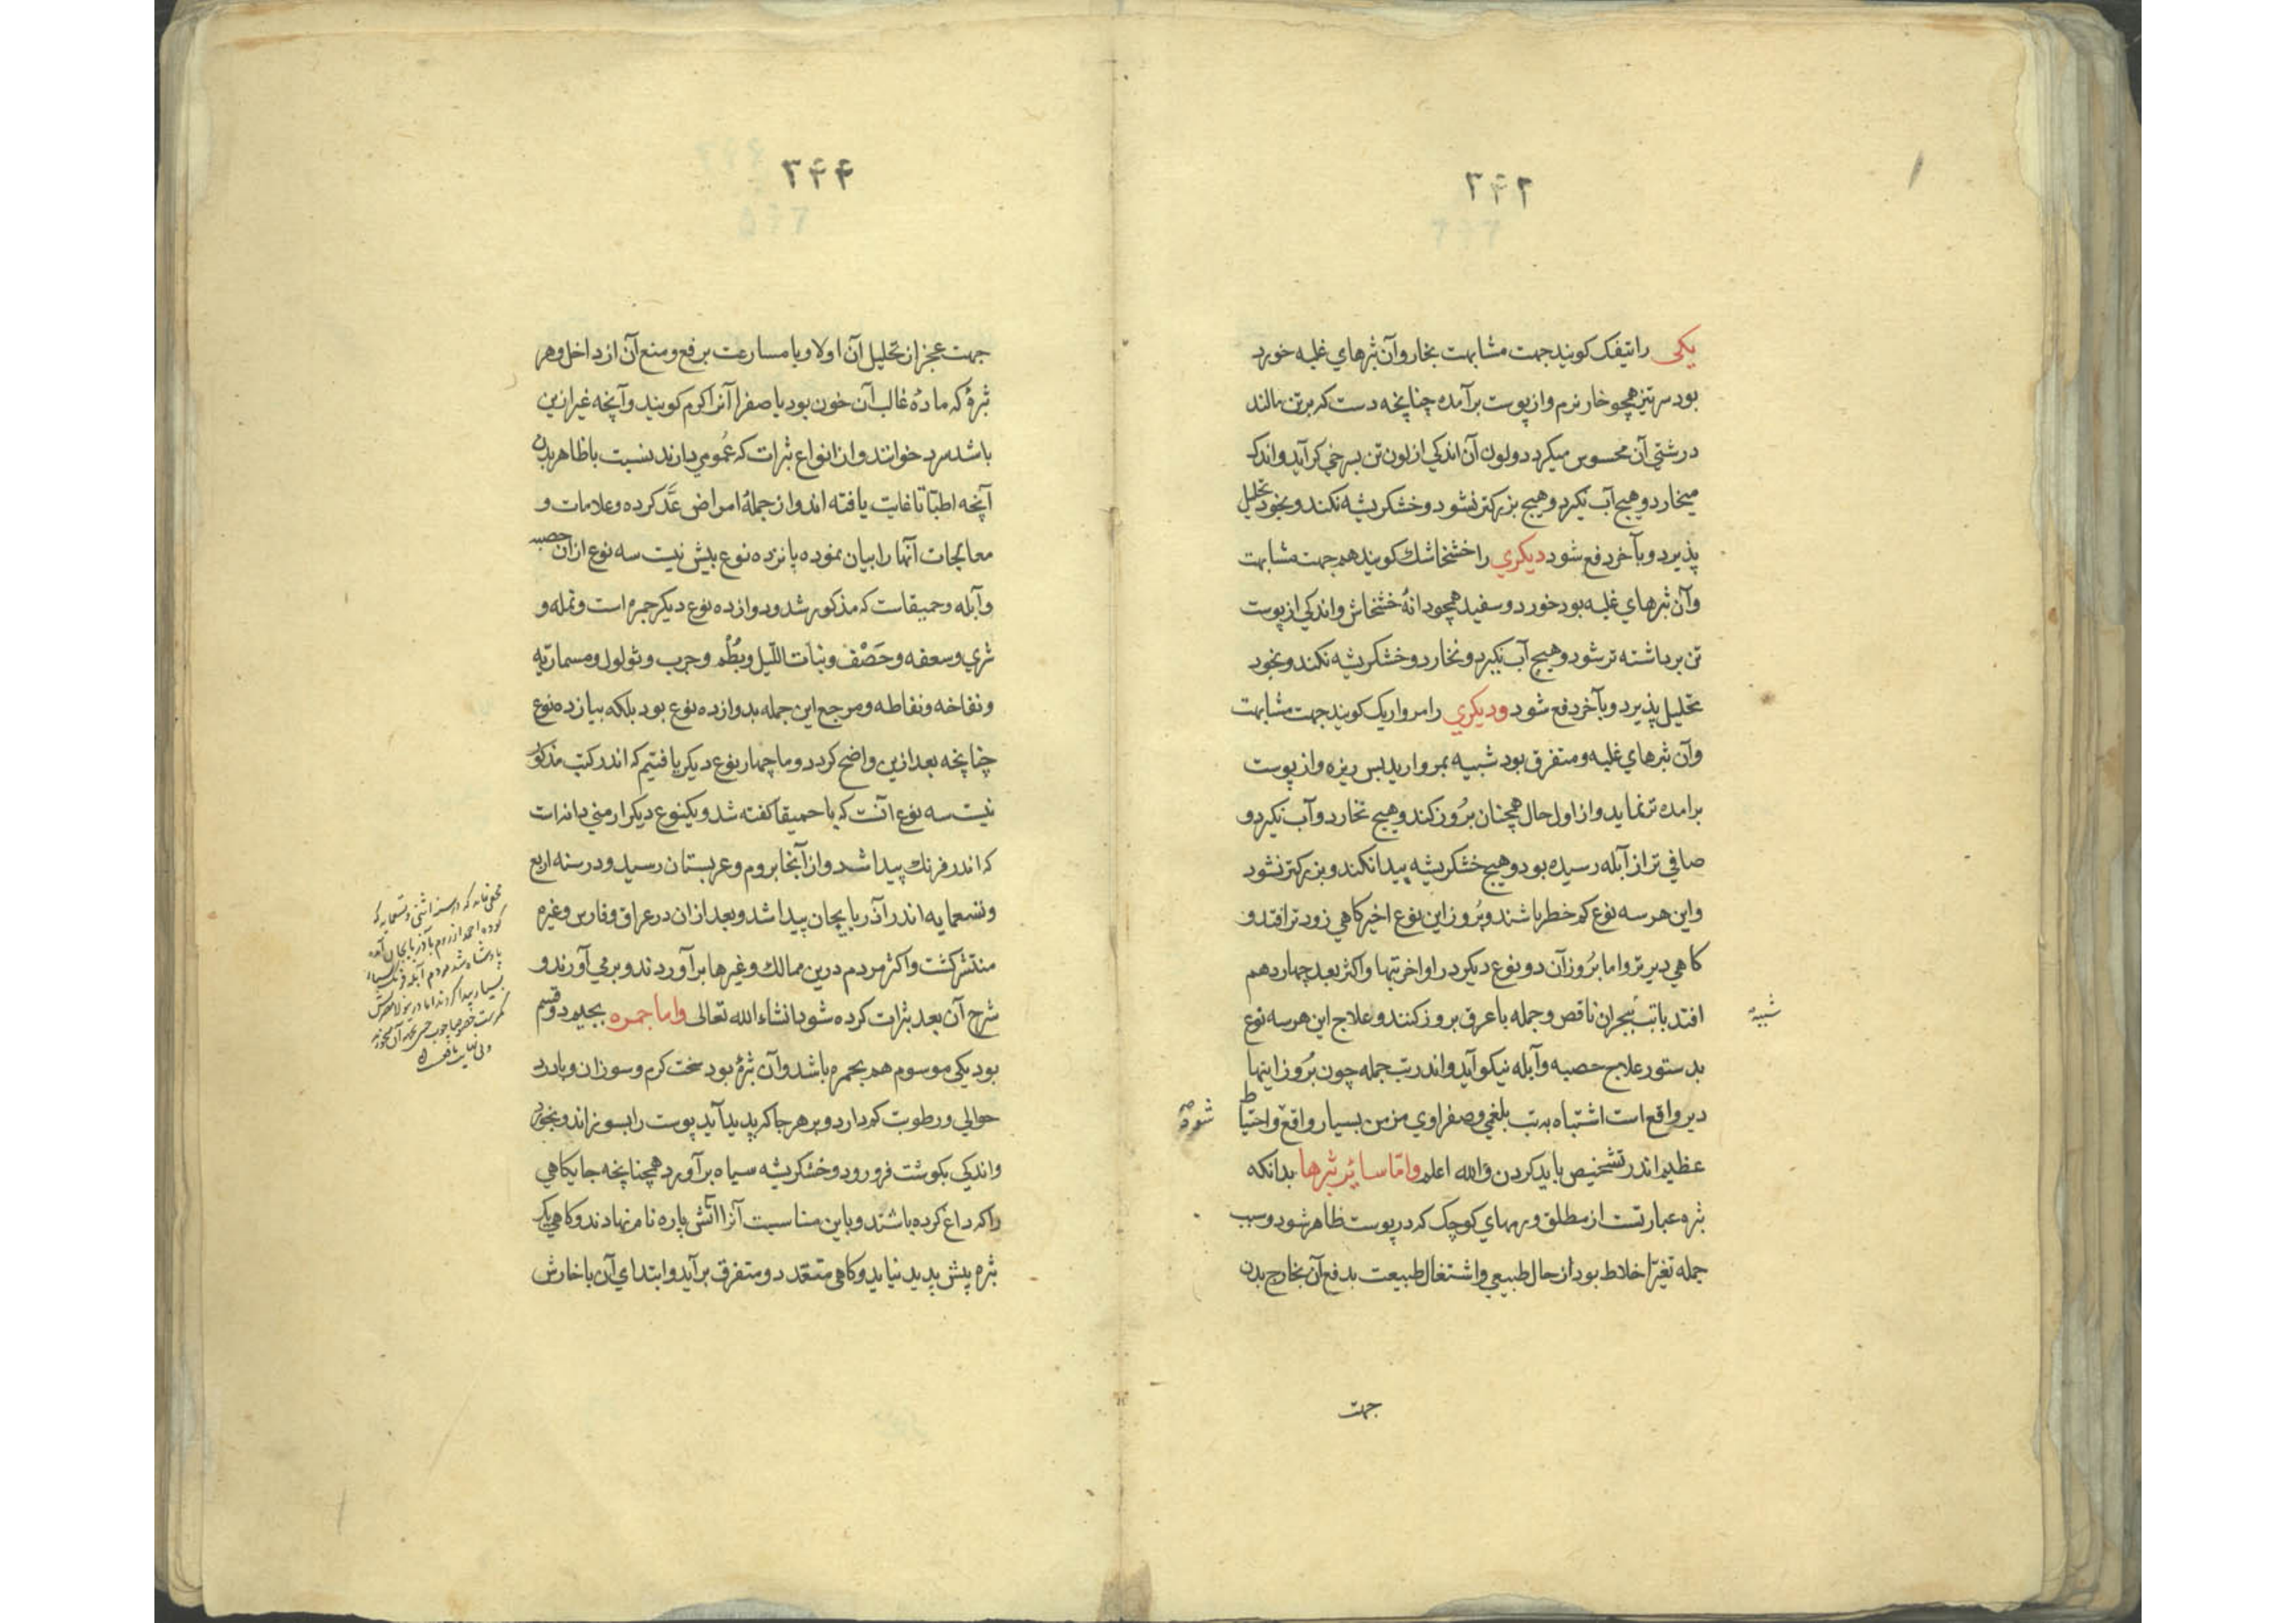 ۳۴۲
یکی را تیفک کویند جهت مشابهت بخار وآن بثرهای غلبه خورد
بود سرتیز همچو خار نرم واز پوست برآمده چنانچه دست که برتن مالند
درشتی آن محسوس میکردد ولون آن اندکی از لون تن بسرخی کرآید واندک
میخارد وهیچ آب نکیرد وهیچ بزرکتر نشود وخشکریشه نکند وبخود تحلیل
پذیرد وبآخر دفع شود دیکری را خشخاشک کویند هم جهت مشابهت
وآن بثرهای غلبه بود خورد وسفید همچو دانهٔ خشخاش واندکی از پوست
تن برداشته تر شود وهیچ آب نکیرد ونخارد وخشکریشه نکند وبخود
تحلیل پذیرد وبآخر دفع شود ودیکری را مرواریک کویند جهت مشابهت
وآن بثرهای غلبه ومتفرق بود شبیه بمروارید بس ریزه واز پوست
برامده تر نماید واز اول حال همچنان بُروز کند وهیچ نخارد وآب نکیرد و
صافی تر از آبله رسیده بود وهیچ خشکریشه پیدا نکند وبزرکتر نشود
واین هر سه نوع کم خطر باشند وبُروز این نوع اخیر کاهی زودتر افتد و
کاهی دیرتر واما بُروز آن دو نوع دیکر در اواخر تبها واکثر بعد چهاردهم
افتد با تب ببحران ناقص وجمله با عرق بروز کنند وعلاج این هر سه نوع
شبیه
بدستور علاج حصبه وآبله نیکو آید واندر تب جمله چون بُروز اینها
دیر واقع است اشتباه به تب بلغمی وصفراوی مزمن بسیار واقع واحتیاط
شود
عظیم اندر تشخیص باید کردن والله اعلم وامّا سایر بثرها بدانکه
بثره عبارتست از مطلق ورمهای کوچک که در پوست ظاهر شود وسبب
جمله تغیّر اخلاط بود از حال طبیعی واشتغال طبیعت بدفع آن بخارج بدن
جهت
۳۴۴
جهت عجز از تحلیل آن اولا ویا مسارعت بر فع ومنع آن از داخل وهر
بثرهٔ که مادهٔ غالب آن خون بود یا صفرا آنرا کرم کویند وآنچه غیر ازین
باشد سرد خوانند واز انواع بثرات که عُمومی دارند بنسبت با ظاهر بدن
آنچه اطبّا تا غایت یافته اند واز جملهٔ امراض عَدّ کرده وعلامات و
معالجات آنها را بیان نموده پانزده نوع بیش نیست سه نوع ازان حصبه
وآبله وحمیقاست که مذکور شد ودوازده نوع دیکر جمره است ونمله و
شری وسعفه وحَصْف وبنات اللّیل وبُطْم وجرب وثولول ومسماریه
ونفاخه ونفاطه ومرجع این جمله بدوازده نوع بود بلکه بیازده نوع
چنانچه بعد ازین واضح کردد وما چهار نوع دیکر یافتیم که اندر کتب مذکور
نیست سه نوع آنست که با حمیقا کفته شد ویکنوع دیکر ارمنی دانه است
که اندر فرنک پیدا شد واز آنجا بروم وعربستان رسید ودر سنه اربع
وتسعمایه اندر آذربایجان پیدا شد وبعد ازان در عراق وفارس وغیره
منتشر کشت واکثر مردم درین ممالک وغیرها برآوردند وبرمی آورند و
شرح آن بعد بثرات کرده شود انشاءالله تعالی واما جمره بجیم دو قسم
بود یکی موسوم هم بجمره باشد وآن بثرهٔ بود سخت کرم وسوزان وبا درد
حوالی ورطوبت کم دارد وبر هر جا که پدید آید پوست را بسوزاند وبخورد
واندکی بکوشت فرو رود وخشکریشه سیاه برآورد همچنانچه جایکاهی
را که داغ کرده باشند وباین مناسبت آنرا آتش پاره نام نهادند وکاهی یک
بثره پیش پدید نیاید وکاهی متعدد ومتفرق برآید وابتدای آن با خارش
مخفی نماند که در سنه اثنی وتسعمایه که
کوده احمد از روم بآذربایجان آمده
پادشاه شد مردم آبله فرنک
بسیار پیدا کردند اما درینولا